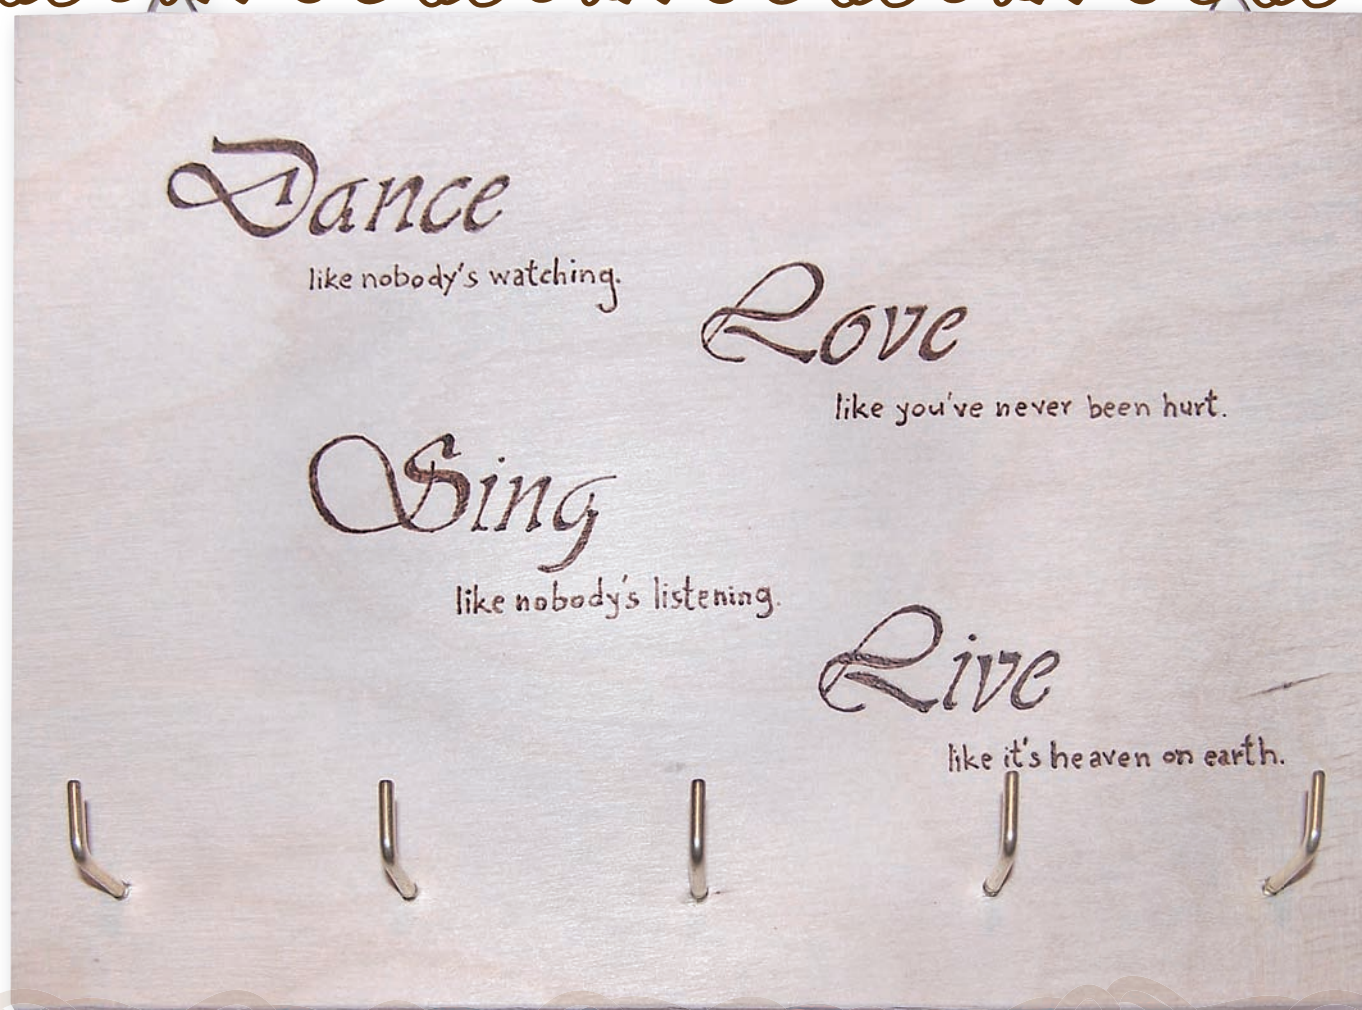 Dance
like nobody's watching.
Love
like you've never been hurt.
Sing
like nobody's listening.
Live
like it's heaven on earth.